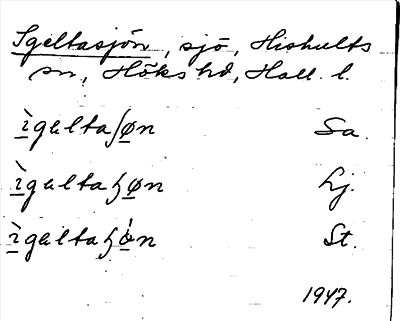 Igeltasjön, sjö, Hishults
sn, Höks hd, Hall. l.
ìgəltaʃøn Sa.
ìgəltaɧøn Lj.
ìgəltaɧǿn St.
1947.